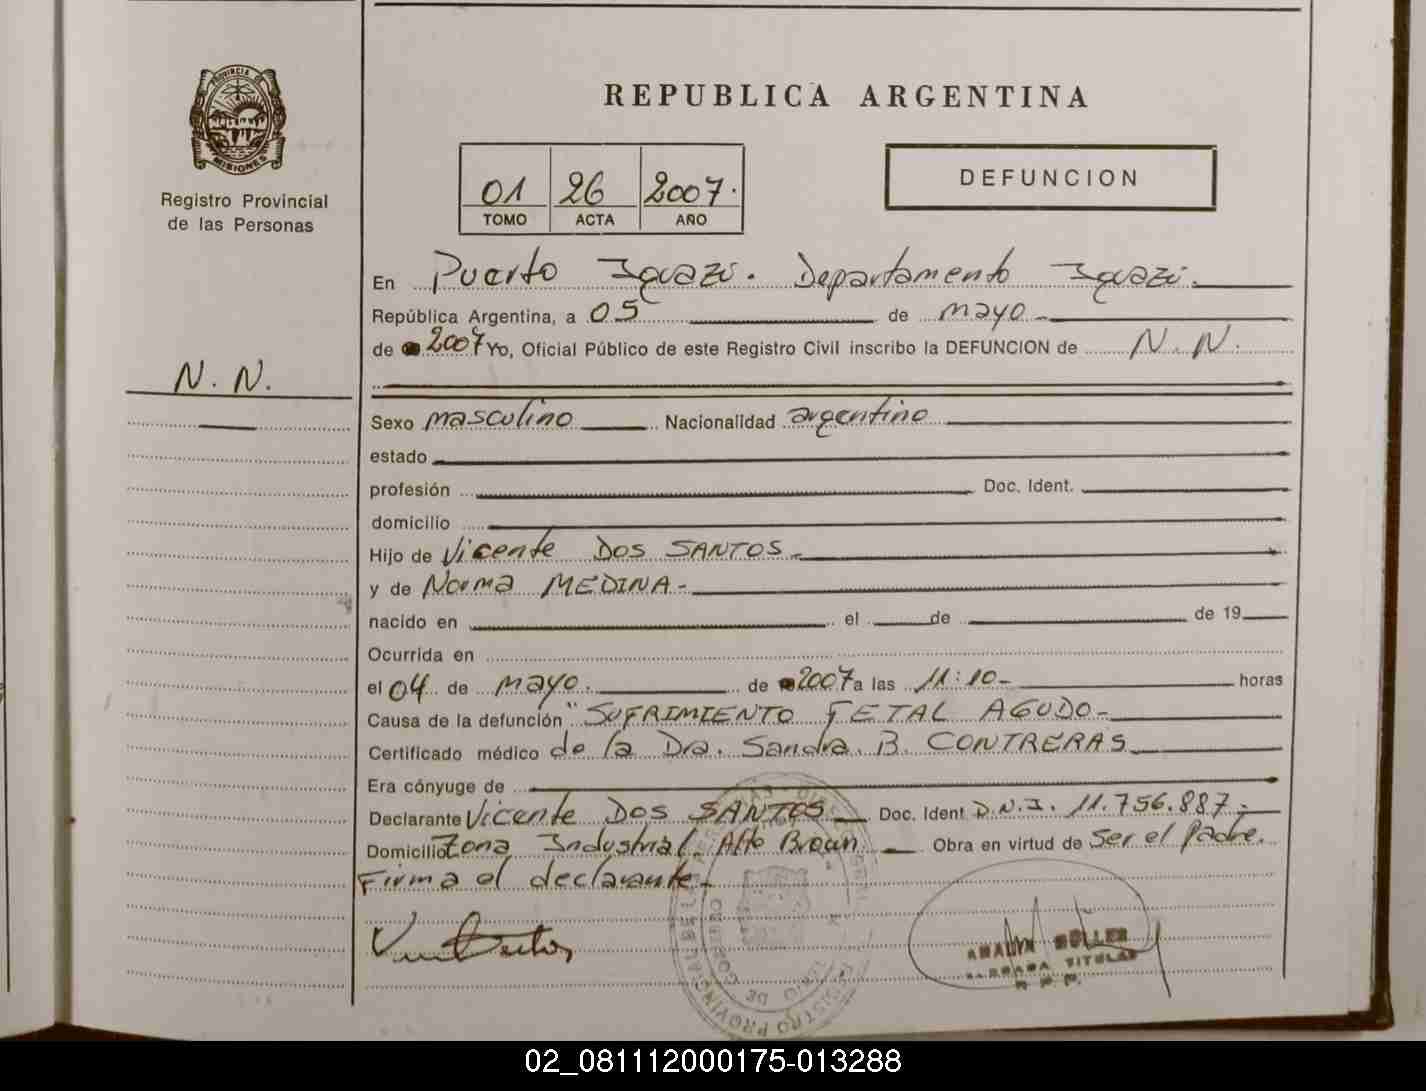 PROVINCIA DE
MISIONES
Registro Provincial
de las Personas
N. N.
REPUBLICA ARGENTINA
01 26 2007.
TOMO ACTA AÑO
DEFUNCION
En Puerto Iguazú. Departamento Iguazú.
República Argentina, a 05 de mayo
de 2007 Yo, Oficial Público de este Registro Civil inscribo la DEFUNCION de N. N.
Sexo masculino Nacionalidad argentino
estado
profesión Doc. Ident.
domicilio
Hijo de Vicente DOS SANTOS.-
y de Norma MEDINA.-
nacido en el de de 19
Ocurrida en
el 04 de mayo. de 2007 a las 11:10.- horas
Causa de la defunción "SUFRIMIENTO FETAL AGUDO.-
Certificado médico de la Dra. Sandra. B. CONTRERAS
Era cónyuge de
Declarante Vicente DOS SANTOS Doc. Ident D.N.I. 11.756.887.-
Domicilio Zona Industrial. Alte Brown Obra en virtud de ser el padre.
Firma el declarante.-
ANALIA MÜLLER
TITULAR
R. P. P.
REGISTRO PROVINCIAL DE LAS PERSONAS
02_081112000175-013288